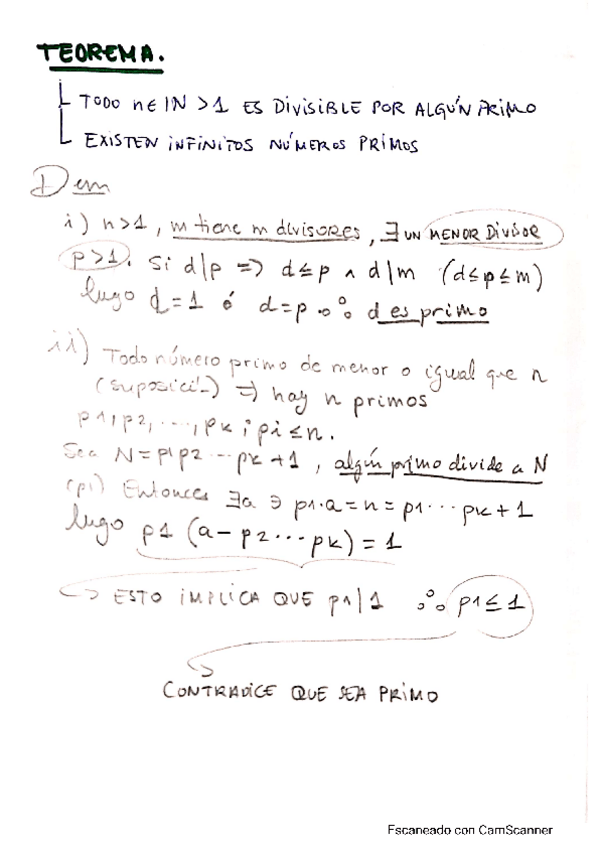 TEOREMA.
TODO n∈IN > 1 ES DIVISIBLE POR ALGÚN PRIMO
EXISTEN INFINITOS NÚMEROS PRIMOS
Dem
i) n>1, m tiene m divisores, ∃ UN MENOR DIVISOR
p>1. Si d|p => d≤p ∧ d|m (d≤p≤m)
lugo d=1 ó d=p ∴ d es primo
ii) Todo número primo de menor o igual que n
(suposici_) => hay n primos
p1, p2, ..., pk ; pi ≤ n.
Sea N = p1 p2 ... pk + 1, algún primo divide a N
(pi) Entonces ∃a ∋ p1·a = n = p1 ... pk + 1
lugo p1 (a - p2 ... pk) = 1
ESTO IMPLICA QUE p1|1 ∴ p1≤1
CONTRADICE QUE SEA PRIMO
Escaneado con CamScanner